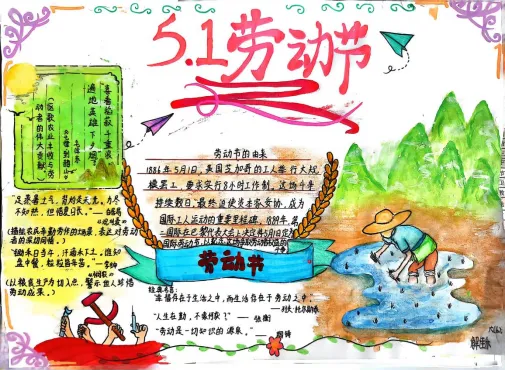 5.1劳动节
喜看稻菽千重浪
遍地英雄下夕烟
毛泽东
《七律到韶山》
(讴歌农业丰收与劳
动者的伟大贡献)
劳动节的由来
1886年5月1日,美国芝加哥的工人举行大规
模罢工,要求实行8小时工作制,这场斗争
持续数日,最终迫使资本家妥协,成为
国际工人运动的重要里程碑,1889年,第
二国际在巴黎代表大会上决议将5月1日定为
劳动节
"足蒸暑土气,背灼炎天光,力尽
不知热,但惜夏日长。"——白居易
《观刈麦》
(描绘农民辛勤劳作的场景,表达对劳动
者的深切同情。)
"锄禾日当午,汗滴禾下土,谁知
盘中餐,粒粒皆辛苦。"——李绅
《悯农》
(以粮食生产为切入点,警示世人珍惜
劳动成果。)
经典名言:
"幸福存在于生活之中,而生活存在于劳动之中。
——列夫·托尔斯泰
"人生在勤,不索何获?" —— 张衡
"劳动是一切知识的源泉。" ——